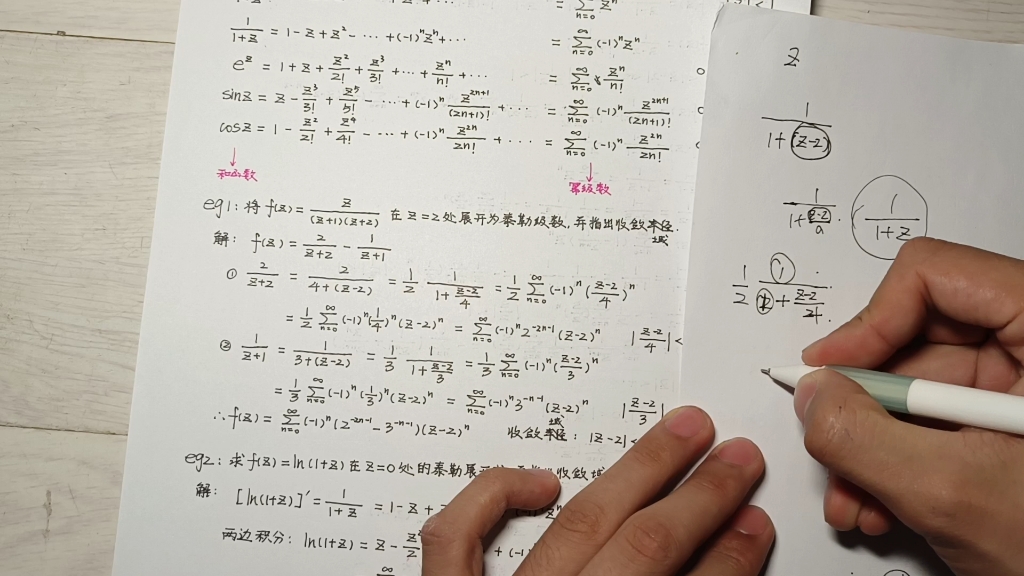 1/(1+z) = 1 - z + z² - ⋯ + (-1)ⁿzⁿ + ⋯ = ∑_{n=0}^{∞} (-1)ⁿzⁿ
e^z = 1 + z + z²/2! + z³/3! + ⋯ + zⁿ/n! + ⋯ = ∑_{n=0}^{∞} zⁿ/n!
sinz = z - z³/3! + z⁵/5! - ⋯ + (-1)ⁿ z^{2n+1}/(2n+1)! + ⋯ = ∑_{n=0}^{∞} (-1)ⁿ z^{2n+1}/(2n+1)!
cosz = 1 - z²/2! + z⁴/4! - ⋯ + (-1)ⁿ z^{2n}/2n! + ⋯ = ∑_{n=0}^{∞} (-1)ⁿ z^{2n}/2n!
和函数 幂级数
eg1: 将 f(z) = z/((z+1)(z+2)) 在 z=2 处展开为泰勒级数, 并指出收敛域.
解: f(z) = 2/(z+2) - 1/(z+1)
① 2/(z+2) = 2/(4+(z-2)) = 1/2 · 1/(1+(z-2)/4) = 1/2 ∑_{n=0}^{∞} (-1)ⁿ ((z-2)/4)ⁿ
= 1/2 ∑_{n=0}^{∞} (-1)ⁿ(1/4)ⁿ(z-2)ⁿ = ∑_{n=0}^{∞} (-1)ⁿ 2^{-2n-1} (z-2)ⁿ |(z-2)/4| <
② 1/(z+1) = 1/(3+(z-2)) = 1/3 · 1/(1+(z-2)/3) = 1/3 ∑_{n=0}^{∞} (-1)ⁿ ((z-2)/3)ⁿ
= 1/3 ∑_{n=0}^{∞} (-1)ⁿ(1/3)ⁿ(z-2)ⁿ = ∑_{n=0}^{∞} (-1)ⁿ 3^{-n-1} (z-2)ⁿ |(z-2)/3|
∴ f(z) = ∑_{n=0}^{∞} (-1)ⁿ (2^{-2n-1} - 3^{-n-1})(z-2)ⁿ 收敛域: |z-2| <
eg2: 求 f(z) = ln(1+z) 在 z=0 处的泰勒展 收敛域
解: [ln(1+z)]′ = 1/(1+z) = 1 - z +
两边积分: ln(1+z) = z - + (-1)
z
1/(1+(z-2))
1/(1+(z-2)/a) 1/(1+z)
1/2 1/(1+(z-2)/4)